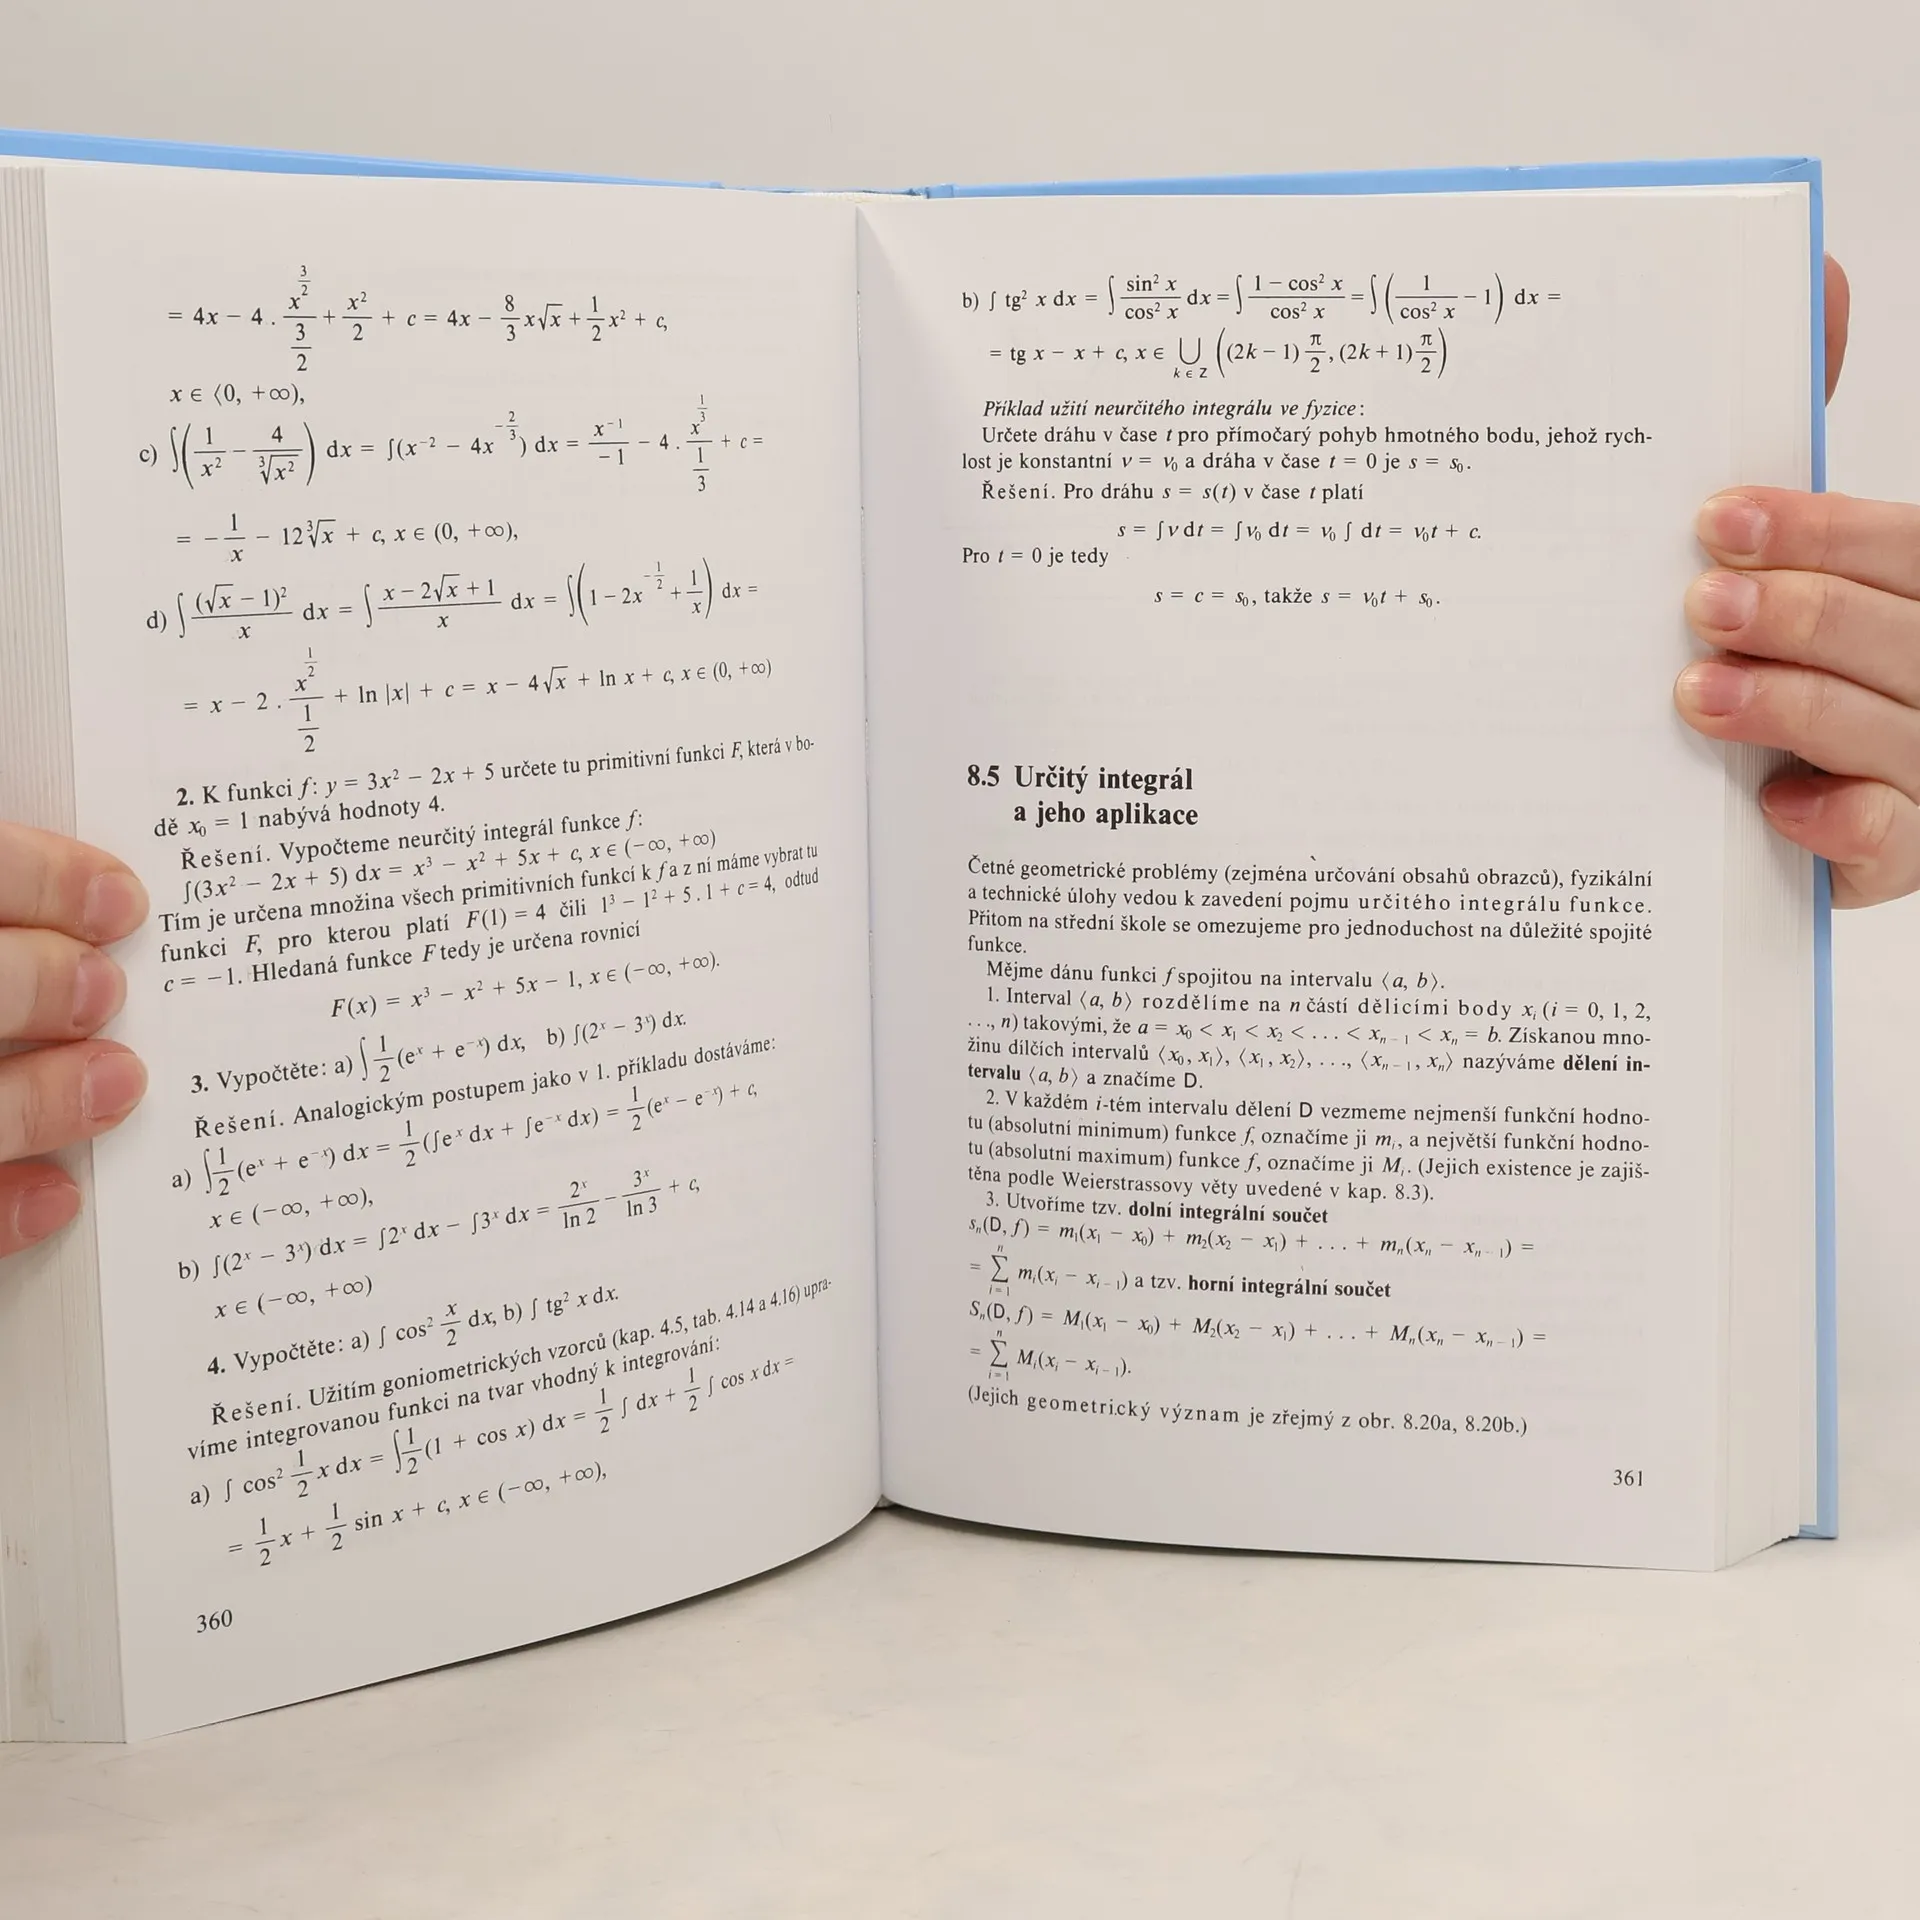 = 4x − 4 . x^(3/2)/(3/2) + x²/2 + c = 4x − 8/3 x√x + 1/2 x² + c,
x ∈ ⟨0, +∞),
c) ∫(1/x² − 4/∛x²) dx = ∫(x⁻² − 4x^(−2/3)) dx = x⁻¹/−1 − 4 . x^(1/3)/(1/3) + c =
= − 1/x − 12∛x + c, x ∈ (0, +∞),
d) ∫ (√x − 1)²/x dx = ∫ (x − 2√x + 1)/x dx = ∫(1 − 2x^(−1/2) + 1/x) dx =
= x − 2 . x^(1/2)/(1/2) + ln |x| + c = x − 4√x + ln x + c, x ∈ (0, +∞)
2. K funkci f: y = 3x² − 2x + 5 určete tu primitivní funkci F, která v bo-
dě x₀ = 1 nabývá hodnoty 4.
Řešení. Vypočteme neurčitý integrál funkce f:
∫(3x² − 2x + 5) dx = x³ − x² + 5x + c, x ∈ (−∞, +∞)
Tím je určena množina všech primitivních funkcí k f a z ní máme vybrat tu
funkci F, pro kterou platí F(1) = 4 čili 1³ − 1² + 5 . 1 + c = 4, odtud
c = −1. Hledaná funkce F tedy je určena rovnicí
F(x) = x³ − x² + 5x − 1, x ∈ (−∞, +∞).
3. Vypočtěte: a) ∫ 1/2 (eˣ + e⁻ˣ) dx, b) ∫(2ˣ − 3ˣ) dx.
Řešení. Analogickým postupem jako v 1. příkladu dostáváme:
a) ∫ 1/2 (eˣ + e⁻ˣ) dx = 1/2 (∫eˣ dx + ∫e⁻ˣ dx) = 1/2 (eˣ − e⁻ˣ) + c,
x ∈ (−∞, +∞),
b) ∫(2ˣ − 3ˣ) dx = ∫2ˣ dx − ∫3ˣ dx = 2ˣ/ln 2 − 3ˣ/ln 3 + c,
x ∈ (−∞, +∞)
4. Vypočtěte: a) ∫ cos² x/2 dx, b) ∫ tg² x dx.
Řešení. Užitím goniometrických vzorců (kap. 4.5, tab. 4.14 a 4.16) upra-
víme integrovanou funkci na tvar vhodný k integrování:
a) ∫ cos² 1/2 x dx = ∫ 1/2 (1 + cos x) dx = 1/2 ∫ dx + 1/2 ∫ cos x dx =
= 1/2 x + 1/2 sin x + c, x ∈ (−∞, +∞),
360
b) ∫ tg² x dx = ∫ sin² x/cos² x dx = ∫ (1 − cos² x)/cos² x = ∫(1/cos² x − 1) dx =
= tg x − x + c, x ∈ ⋃_(k ∈ Z) ((2k − 1) π/2, (2k + 1) π/2)
Příklad užití neurčitého integrálu ve fyzice:
Určete dráhu v čase t pro přímočarý pohyb hmotného bodu, jehož rych-
lost je konstantní v = v₀ a dráha v čase t = 0 je s = s₀.
Řešení. Pro dráhu s = s(t) v čase t platí
s = ∫v dt = ∫v₀ dt = v₀ ∫ dt = v₀t + c.
Pro t = 0 je tedy
s = c = s₀, takže s = v₀t + s₀.
8.5 Určitý integrál
a jeho aplikace
Četné geometrické problémy (zejména určování obsahů obrazců), fyzikální
a technické úlohy vedou k zavedení pojmu určitého integrálu funkce.
Přitom na střední škole se omezujeme pro jednoduchost na důležité spojité
funkce.
Mějme dánu funkci f spojitou na intervalu ⟨a, b⟩.
1. Interval ⟨a, b⟩ rozdělíme na n částí dělicími body xᵢ (i = 0, 1, 2,
..., n) takovými, že a = x₀ < x₁ < x₂ < ... < xₙ₋₁ < xₙ = b. Získanou mno-
žinu dílčích intervalů ⟨x₀, x₁⟩, ⟨x₁, x₂⟩, ..., ⟨xₙ₋₁, xₙ⟩ nazýváme dělení in-
tervalu ⟨a, b⟩ a značíme D.
2. V každém i-tém intervalu dělení D vezmeme nejmenší funkční hodno-
tu (absolutní minimum) funkce f, označíme ji mᵢ, a největší funkční hodno-
tu (absolutní maximum) funkce f, označíme ji Mᵢ. (Jejich existence je zajiš-
těna podle Weierstrassovy věty uvedené v kap. 8.3).
3. Utvoříme tzv. dolní integrální součet
sₙ(D, f) = m₁(x₁ − x₀) + m₂(x₂ − x₁) + ... + mₙ(xₙ − xₙ₋₁) =
= ∑_(i=1)^n mᵢ(xᵢ − xᵢ₋₁) a tzv. horní integrální součet
Sₙ(D, f) = M₁(x₁ − x₀) + M₂(x₂ − x₁) + ... + Mₙ(xₙ − xₙ₋₁) =
= ∑_(i=1)^n Mᵢ(xᵢ − xᵢ₋₁).
(Jejich geometrický význam je zřejmý z obr. 8.20a, 8.20b.)
361